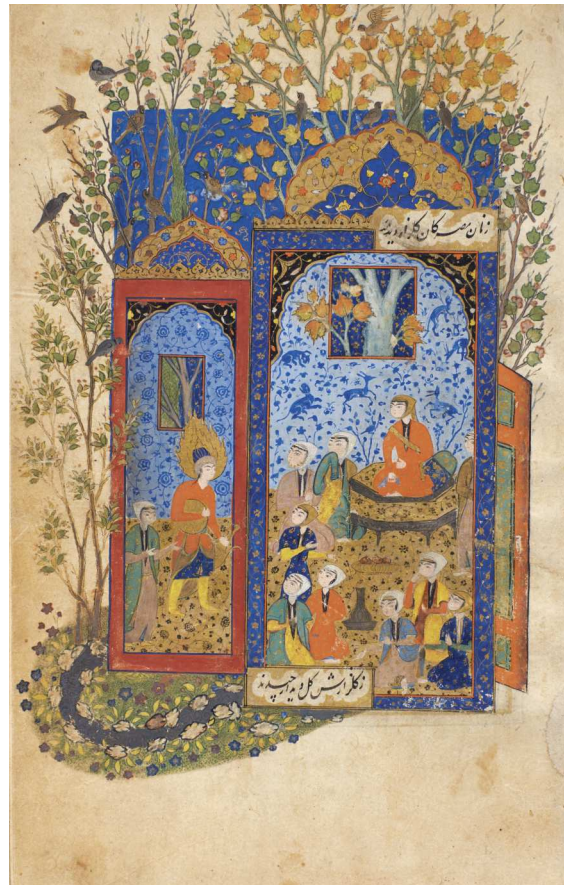 زنان مصر کان کلزار دیدند
زکلزارش کل دیدار چیدند